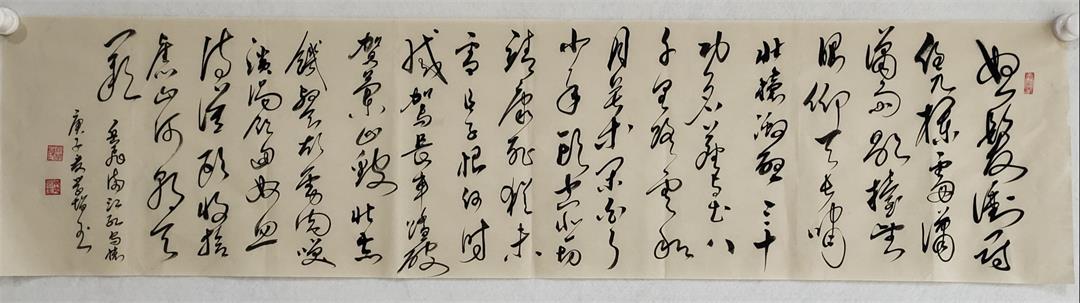 怒髮衝冠
憑欄處瀟
瀟雨歇擡望
眼仰天長嘯
壯懷激烈三十
功名塵與土八
千里路雲和
月莫等閒白了
少年頭空悲切
靖康恥猶未
雪臣子恨何時
滅駕長車踏破
賀蘭山缺壯志
飢餐胡虜肉笑
談渴飲匈奴血
待從頭收拾
舊山河朝天
闕
岳飛滿江紅寫懷
庚子夏書